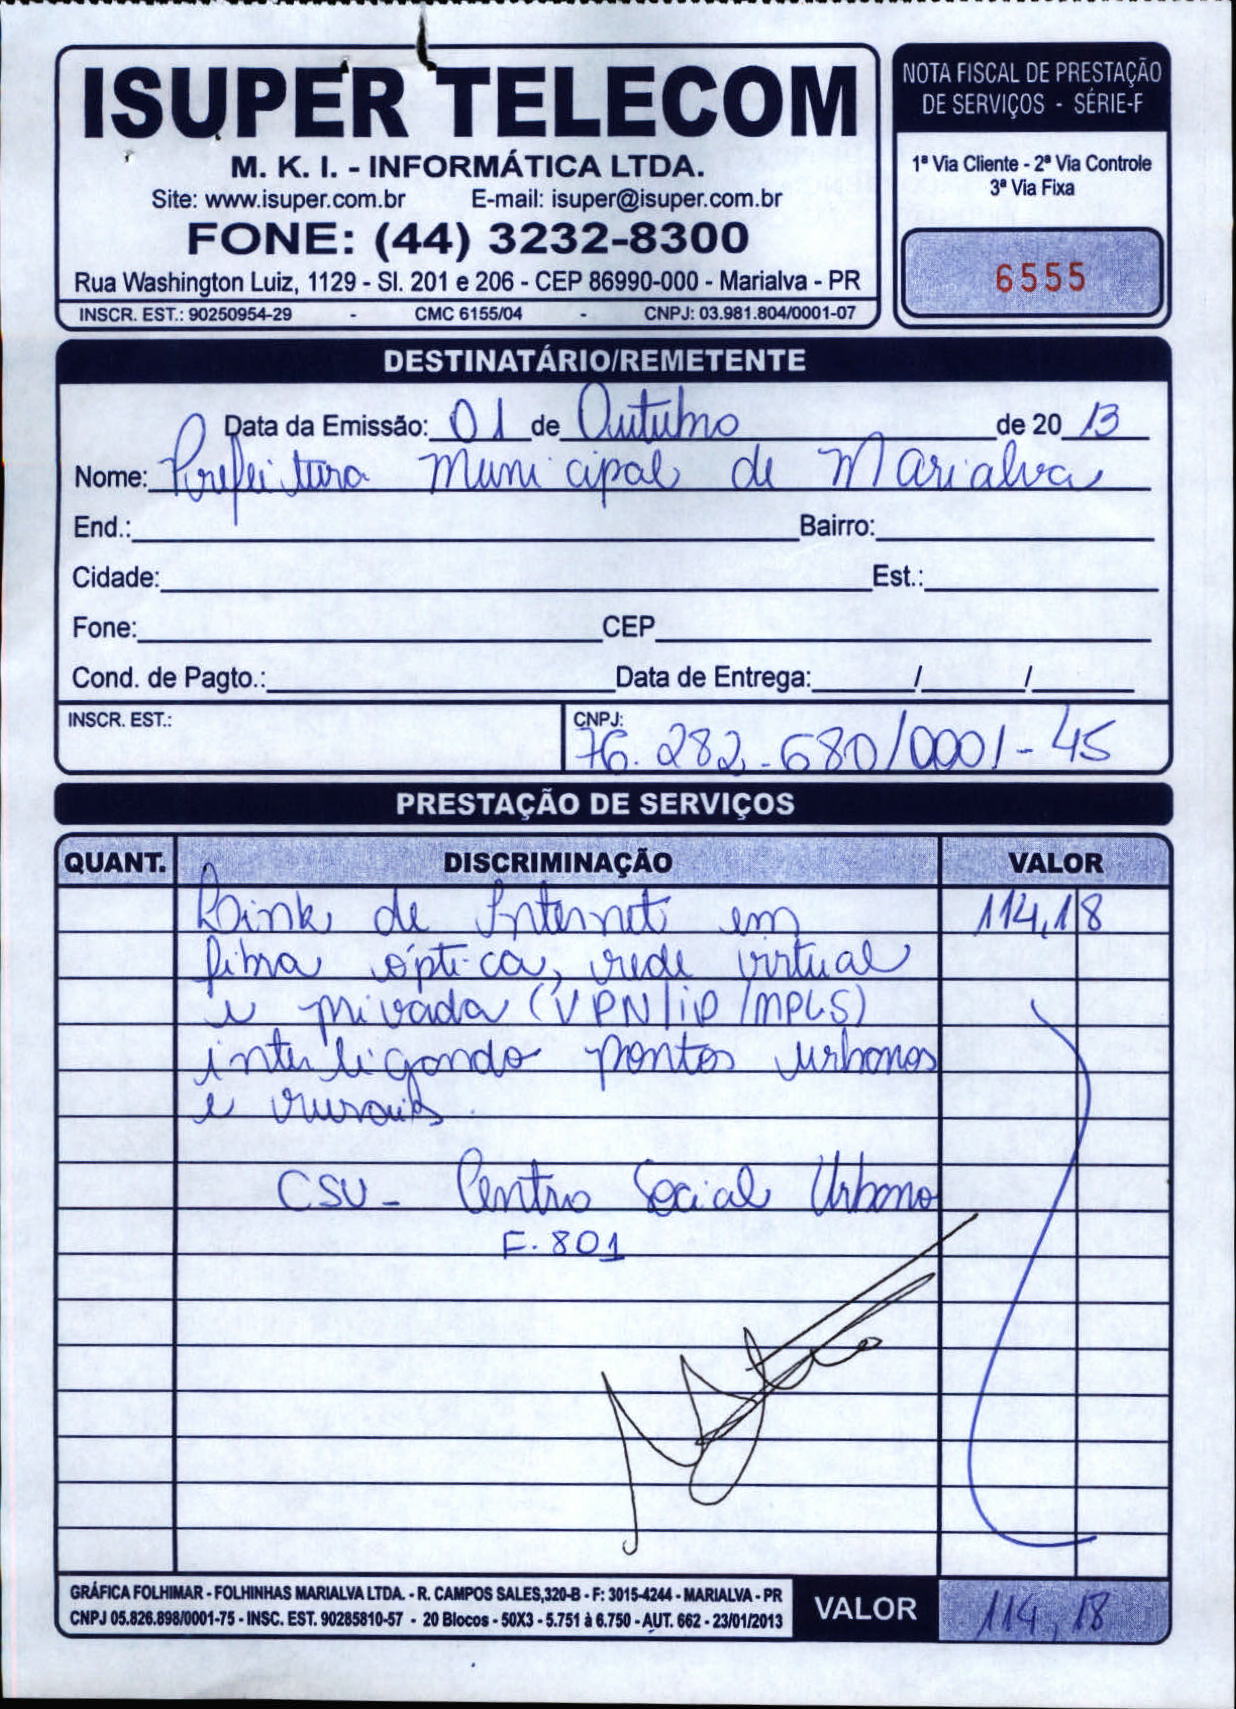 ISUPER TELECOM
M. K. I. - INFORMÁTICA LTDA.
Site: www.isuper.com.br E-mail: isuper@isuper.com.br
FONE: (44) 3232-8300
Rua Washington Luiz, 1129 - Sl. 201 e 206 - CEP 86990-000 - Marialva - PR
INSCR. EST.: 90250954-29 - CMC 6155/04 - CNPJ: 03.981.804/0001-07
NOTA FISCAL DE PRESTAÇÃO
DE SERVIÇOS - SÉRIE-F
1ª Via Cliente - 2ª Via Controle
3ª Via Fixa
6555
DESTINATÁRIO/REMETENTE
Data da Emissão: 01 de Outubro de 20 13
Nome: Prefeitura Municipal de Marialva
End.: Bairro:
Cidade: Est.:
Fone: CEP
Cond. de Pagto.: Data de Entrega: / /
INSCR. EST.: CNPJ:
76.282.680/0001-45
PRESTAÇÃO DE SERVIÇOS
QUANT. DISCRIMINAÇÃO VALOR
Link de Internet em 114,18
fibra óptica, rede virtual
e privada (VPN/IP/MPLS)
interligando pontos urbanos
e rurais.
CSU - Centro Social Urbano
F. 801
GRÁFICA FOLHIMAR - FOLHINHAS MARIALVA LTDA. - R. CAMPOS SALES,320-B - F: 3015-4244 - MARIALVA - PR
CNPJ 05.826.898/0001-75 - INSC. EST. 90285810-57 - 20 Blocos - 50X3 - 5.751 à 6.750 - AUT. 662 - 23/01/2013
VALOR 114,18